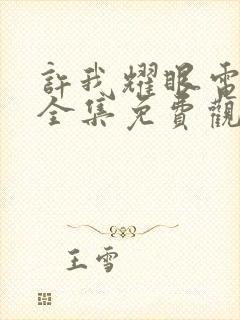 許我耀眼電
全集免費觀
王雪